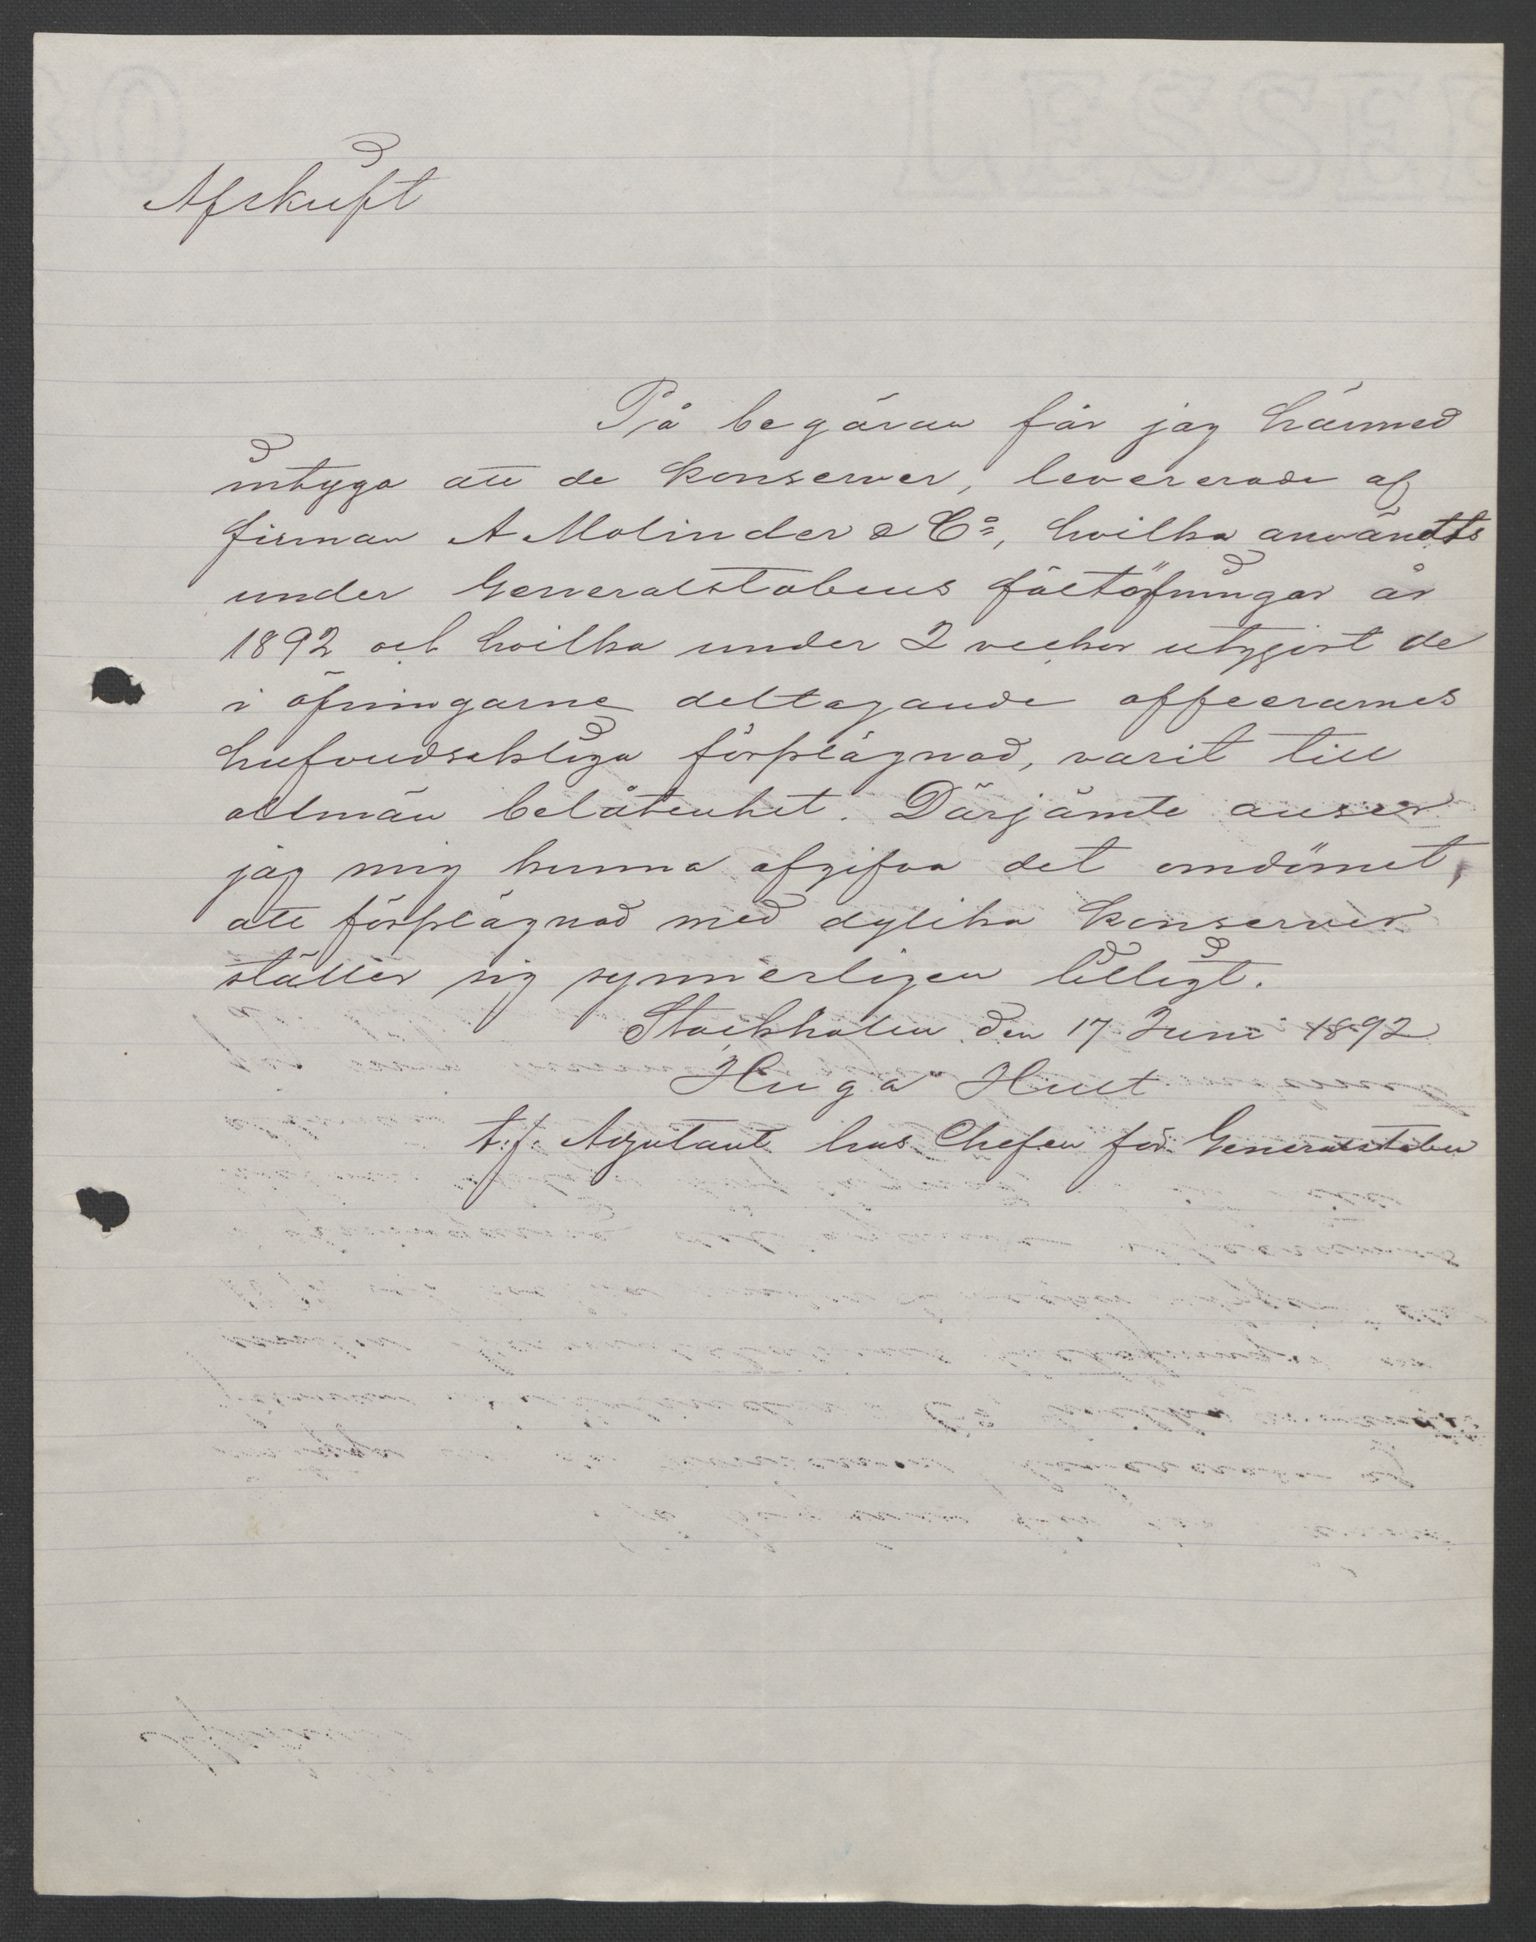 Afskrift
På begäran får jag härmed
intyga att de konserver, levererade af
firman A Molinder & Co, hvilka användts
under Generalstabens fältöfningar år
1892 och hvilka under 2 veckor utgjort de
i öfningarne deltagande officerarnes
hufvudsakliga förplägnad, varit till
allmän belåtenhet. Därjämte anser
jag mig kunna afgifva det omdömet,
att förplägnad med dylika konserver
ställer sig synnerligen billigt.
Stockholm den 17 Juni 1892
Hugo Hult
t.f. Adjutant hos Chefen för Generalstaben